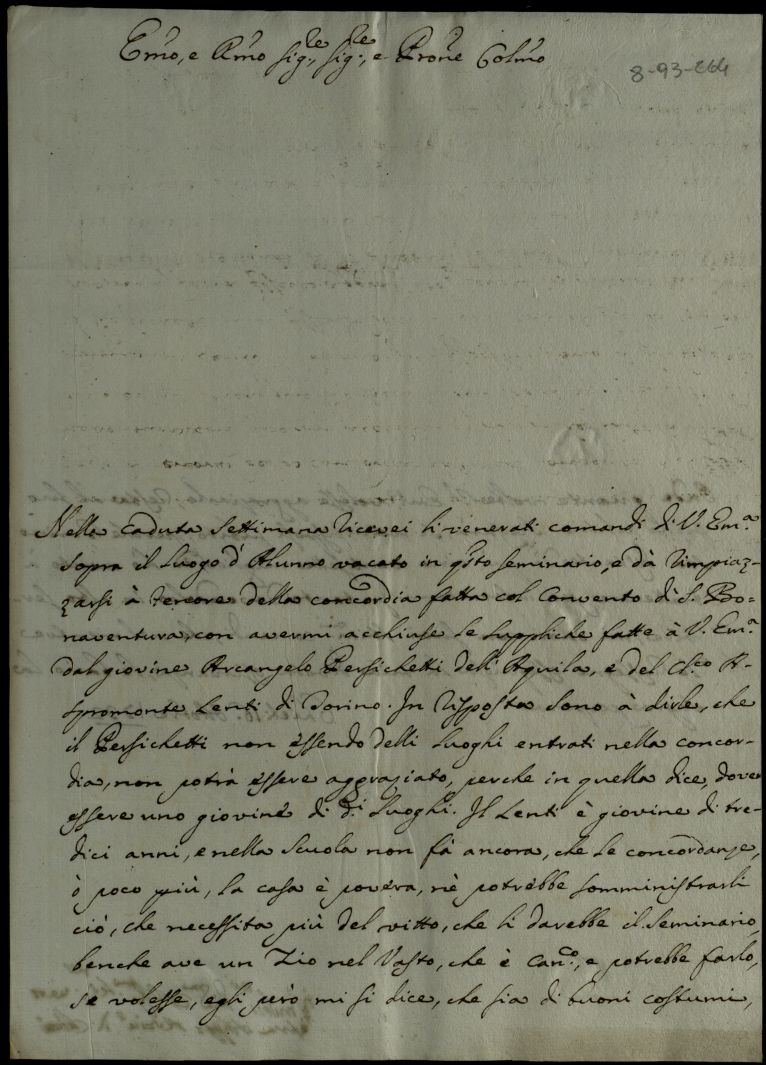 Em̃o, e Rm̃o Sig.re Sig.re, e Prone Colmo
8-93-264
Nella caduta settimana ricevei li venerati comandi di V. Em.a
sopra il luogo d'Alunno vacato in q̃sto seminario, e dà rimpiaz-
zarsi à tenore della concordia fatta col Convento di S. Bo=
naventura, con avermi acchiuse le suppliche fatte à V. Em.a
dal giovine Arcangelo Persichetti dell'Aquila, e del Ch.co A-
spromonte Lenti di Torino. In risposta sono à dirle, che
il Persichetti non èssendo delli luoghi entrati nella concor-
dia, non potrà èssere aggraziato, perche in quella dice, dover
èssere uno giovine di d.i luoghi. Il Lenti è giovine di tre-
dici anni, e nella scuola non fà ancora, che le concordanze,
ò poco più, la casa è povera, nè potrebbe somministrarli
ciò, che necessita più del vitto, che li darebbe il seminario,
benche ave un Zio nel Vasto, che è Can.co, e potrebbe farlo,
se volesse, egli però mi si dice, che sia di buoni costumi,